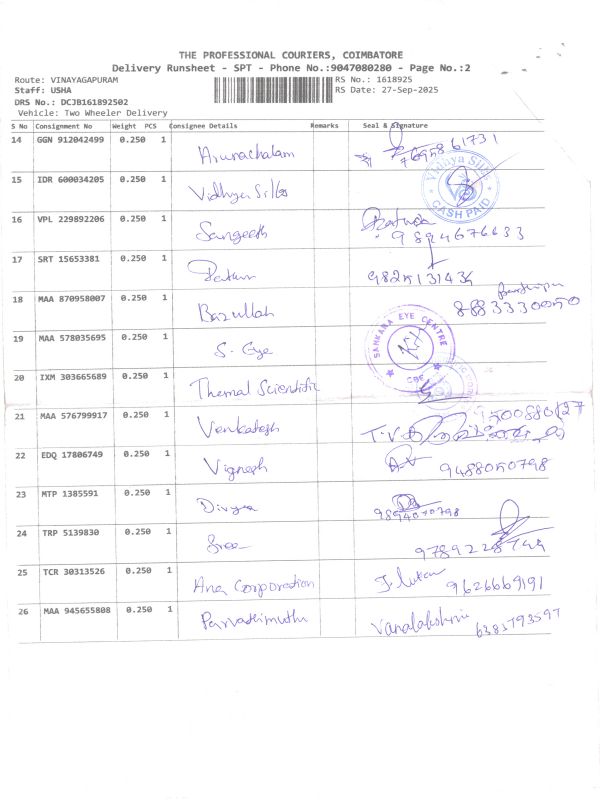 THE PROFESSIONAL COURIERS, COIMBATORE
Delivery Runsheet - SPT - Phone No.:9047080280 - Page No.:2
Route: VINAYAGAPURAM
RS No.: 1618925
Staff: USHA
RS Date: 27-Sep-2025
DRS No.: DCJB161892502
Vehicle: Two Wheeler Delivery
S No Consignment No Weight PCS Consignee Details Remarks Seal & Signature
14 GGN 912042499 0.250 1 Arunachalam
15 IDR 600034205 0.250 1 Vidhya Silks
Vidhya Silks CASH PAID
16 VPL 229892206 0.250 1 Sangeeth
17 SRT 15653381 0.250 1 9825131434
18 MAA 870958007 0.250 1 Bazullah 8883330050
19 MAA 578035695 0.250 1 S. Eye
SANKARA EYE CENTRE CBE
20 IXM 303665689 0.250 1 Thermal Scientific
21 MAA 576799917 0.250 1 Venkatesh
22 EDQ 17806749 0.250 1 Vignesh 9488050798
23 MTP 1385591 0.250 1 Divya
24 TRP 5139830 0.250 1 Sree
25 TCR 30313526 0.250 1 Ana Corporation 9626669191
26 MAA 945655808 0.250 1 Parvathimuthu 6383793597